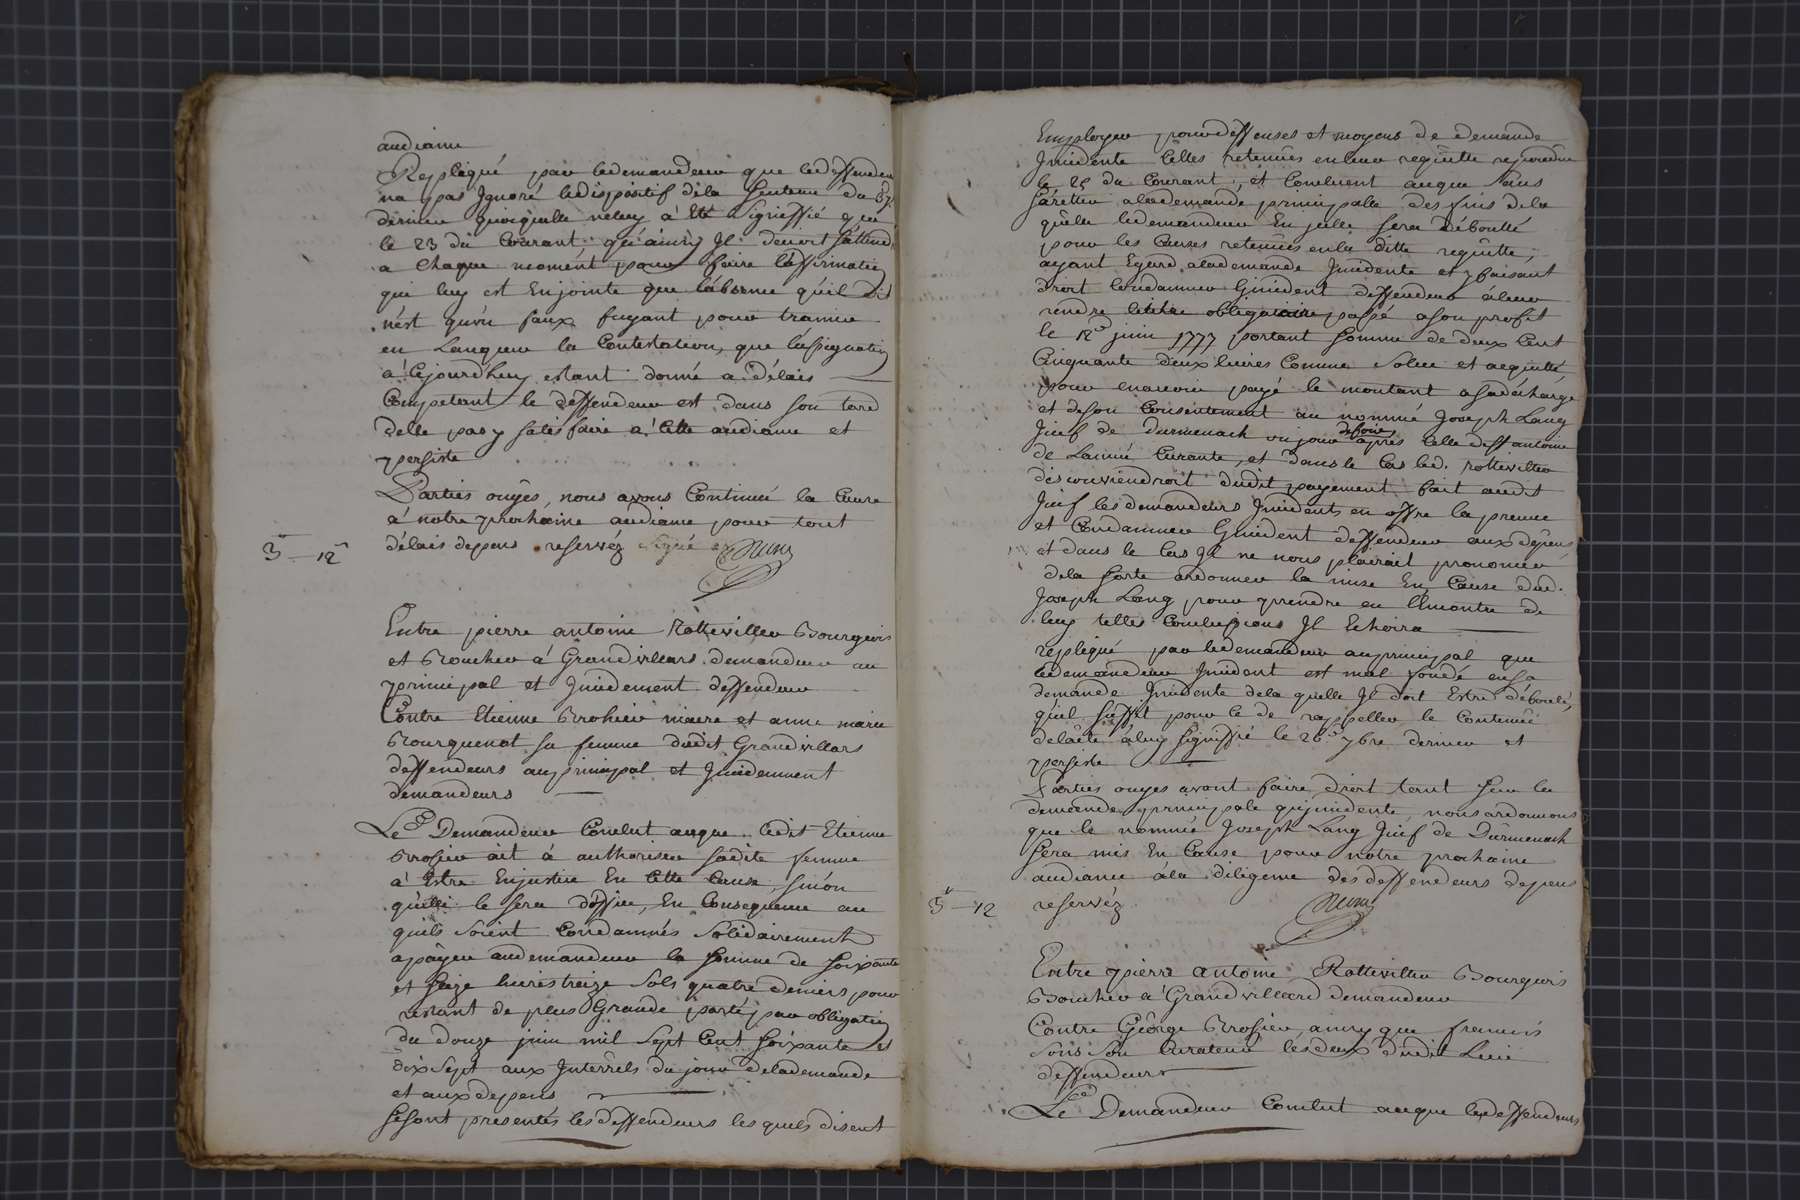 audiance
Repliqué par ledemandeur que ledeffendeur
na pas Ignoré ledispositif dela Sentence du
dernier quoiquelle neluy à été Signiffié que
le 23 du Courant; qu'ainsy Il devoit sattendre
a Chaque momént pour faire l'affirmation
qui luy est Enjointe que l'absence qu'il dit
n'est qu'un faux fuyant pour trainer
en Langueur la Contestation, que l'assignation
à Cejourdhuy estant donné a délais
Competant le deffendeur est dans son tord
delle pas y satisfaire à Cette audiance et
persiste
Parties ouÿes, nous avons Continué la Cause
à notre prochaine audiance pour tout
délais depens reservéz Signé
3 — 12
Entre pierre antoine Rotteviller Bourgeois
et Boucher à Grandvillars demandeur au
principal et Incidement deffendeur
Contre Etienne Brosier maire et anne marie
Bourquenot sa femme dudit Grandvillars
deffendeurs auprincipal et Incidemment
demandeurs
Le Demandeur Conclut aceque ledit Etienne
Brosier ait à authoriser sadite femme
à Estre Enjustice En Cette Cause, sinon
qu'elle le sera d'office, En Consequence au
quels soient Condamnés Solidairement
apaÿer audemandeur la Somme de soixante
et seize livres treize Sols quatre deniers pour
restant de plus Grande porté par obligation
du douze juin mil Sept Cent soixante et
dix Sept aux Interrets du jour delademande
et aux depens
Sesont presentés les deffendeurs lesquels disent
Employer pour deffenses et moyens de demande
Incidente Celles retenües enleur requêtte repondüe
le 25 du Courant, et Concluent aceque Sans
S'arrêtter alademande principalle des fins dela
quelle ledemandeur En jcelle sera débouté
pour les Causes retenües enla ditte requêtte;
ayant Egard alademande Incidente et y faisant
droit Condamner Lincident deffendeur àleur
rendre letitre obligatoire passé ason profit
le 12e juin 1777 portant somme de deux Cent
Cinquante deux livres Comme Solue et acquitté
pour enavoir payé le montant asadécharge
et deson Consentement au nommé Joseph Lang
Juif de Durmenach un jour de foire après Celle de St antoine
de Lannée Curante, et dans le Cas led. rotteviller
disconviendroit dudit payement fait audit
Juif les demandeurs Incidents en offre la preuve
et Condamner Lincident deffendeur aux dépens
et dans le Cas Il ne nous plairait prononcer
dela sorte ordonner la mise En Cause dud.
Joseph Lang pour prendre en Encontre de
luy telles Conclusions Il Echoira
repliqué par ledemandeur auprincipal que
ledemandeur Incident est mal fondé ensa
demande Incidente dela quelle Il doit Estre débouté,
qu'il suffit pour le de rappeller le Contenüe
delacte àluy Signiffié le 26e 7bre dernier et
persiste
Parties ouÿes avant faire droit tant sur la
demande principale qu'jncidente, nous ordonnons
que le nommé Joseph Lang Juif de Durmenach
sera mis En Cause pour notre prochaine
audiance àla diligence des deffendeurs depens
5 — 12 reservéz
Entre pierre antoine Rotteviller Bourgeois
Boucher a Grandvillard demandeur
Contre Géorge Brosier, ainsy que francois
Sous Son Curateur les deux dudit Lieu
deffendeurs
Le Demandeur Conclut aceque lesdeffendeurs